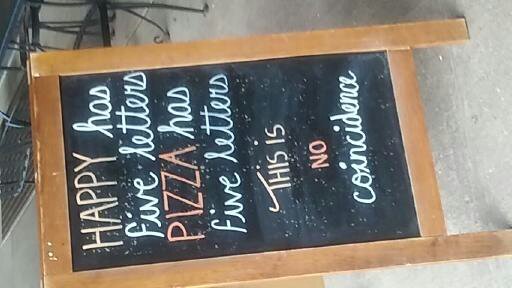 HAPPY has
five letters
PIZZA has
five letters
THIS IS
NO
coincidence